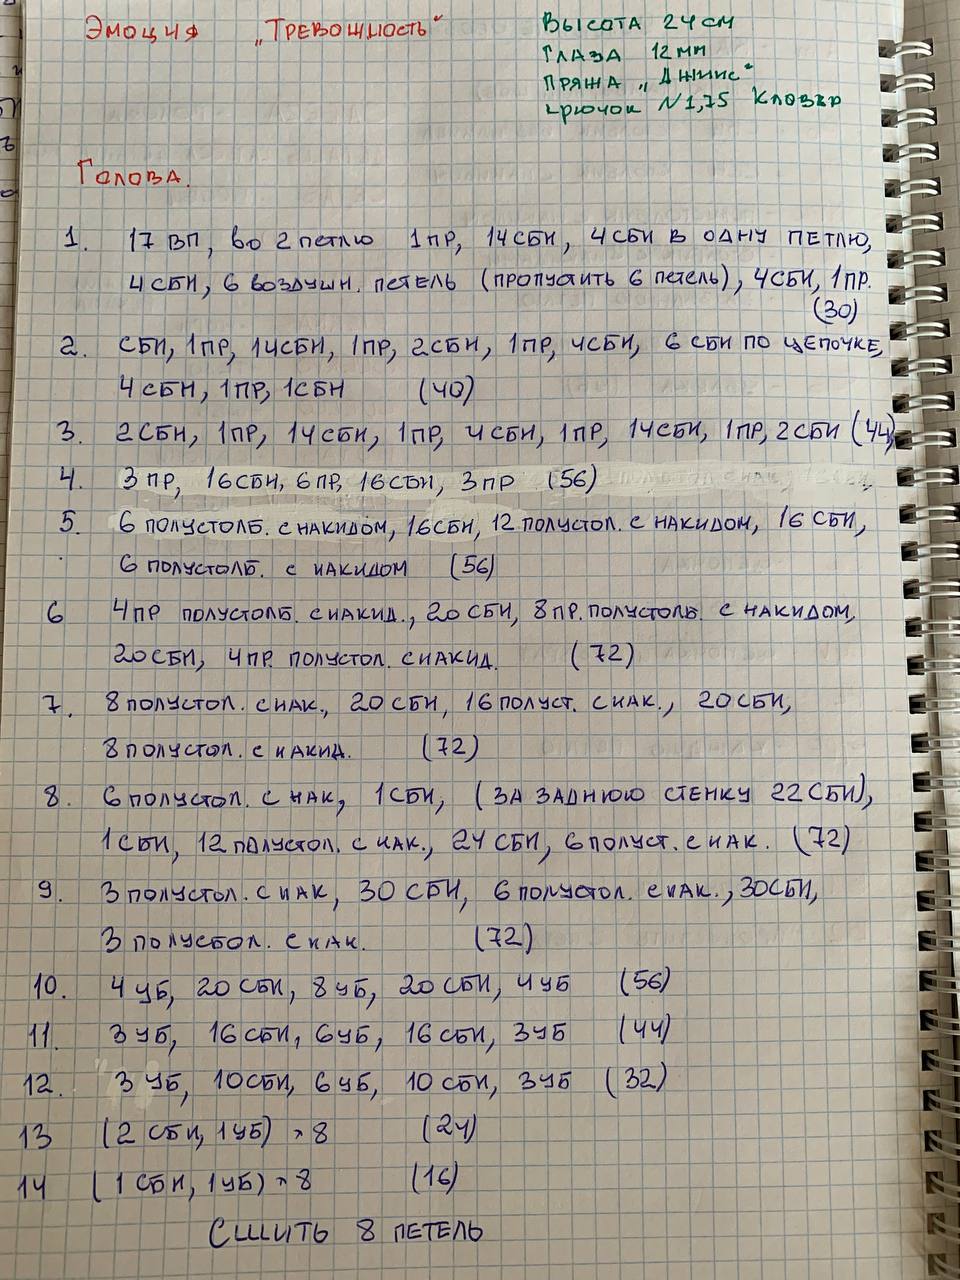 Эмоция „Тревожность"
Высота 24 см
Глаза 12 мм
Пряжа „Джинс"
крючок №1,75 Кловер
Голова.
1. 17 ВП, во 2 петлю 1 пр, 14 СБН, 4 СБН в одну петлю,
4 СБН, 6 воздушн. петель (пропустить 6 петель), 4 СБН, 1 ПР.
(30)
2. СБН, 1 ПР, 14 СБН, 1 ПР, 2 СБН, 1 ПР, 4 СБН, 6 СБН по цепочке,
4 СБН, 1 ПР, 1 СБН (40)
3. 2 СБН, 1 ПР, 14 СБН, 1 ПР, 4 СБН, 1 ПР, 14 СБН, 1 ПР, 2 СБН (44)
4. 3 ПР, 16 СБН, 6 ПР, 16 СБН, 3 ПР (56)
5. 6 полустолб. с накидом, 16 СБН, 12 полустол. с накидом, 16 СБН,
6 полустолб. с накидом (56)
6 4 ПР полустолб. с накид., 20 СБН, 8 ПР. полустолб. с накидом,
20 СБН, 4 ПР. полустол. с накид. (72)
7. 8 полустол. с нак., 20 СБН, 16 полуст. с нак., 20 СБН,
8 полустол. с накид. (72)
8. 6 полустол. с нак, 1 СБН, (за заднюю стенку 22 СБН),
1 СБН, 12 полустол. с нак., 24 СБН, 6 полуст. с нак. (72)
9. 3 полустол. с нак, 30 СБН, 6 полустол. с нак., 30 СБН,
3 полустол. с нак. (72)
10. 4 УБ, 20 СБН, 8 УБ, 20 СБН, 4 УБ (56)
11. 3 УБ, 16 СБН, 6 УБ, 16 СБН, 3 УБ (44)
12. 3 УБ, 10 СБН, 6 УБ, 10 СБН, 3 УБ (32)
13 (2 СБН, 1 УБ) × 8 (24)
14 (1 СБН, 1 УБ) × 8 (16)
Сшить 8 петель